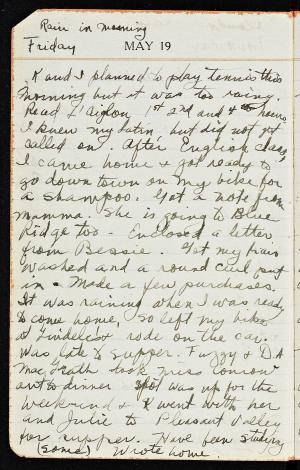 Rain in morning
Friday MAY 19
K and I planned to play tennis this
morning but it was too rainy.
Read L'Aiglon 1st 2nd and 4th hours
I knew my Latin but did not get
called on. After English class,
I came home & got ready to
go down town on my bike for
a shampoo. Got a note from
Mamma. She is going to Blue
Ridge too - Enclosed a letter
from Bessie. Got my hair
washed and a round curl put
in - Made a few purchases.
It was raining when I was ready
to come home, so left my bike
at & rode on the car.
Was late to supper. Fuzzy & D.A.
took Miss
out to dinner Spot was up for the
weekend & K went with her
and Julie to Pleasant Valley
for supper. Have been studying
(some) Wrote home.